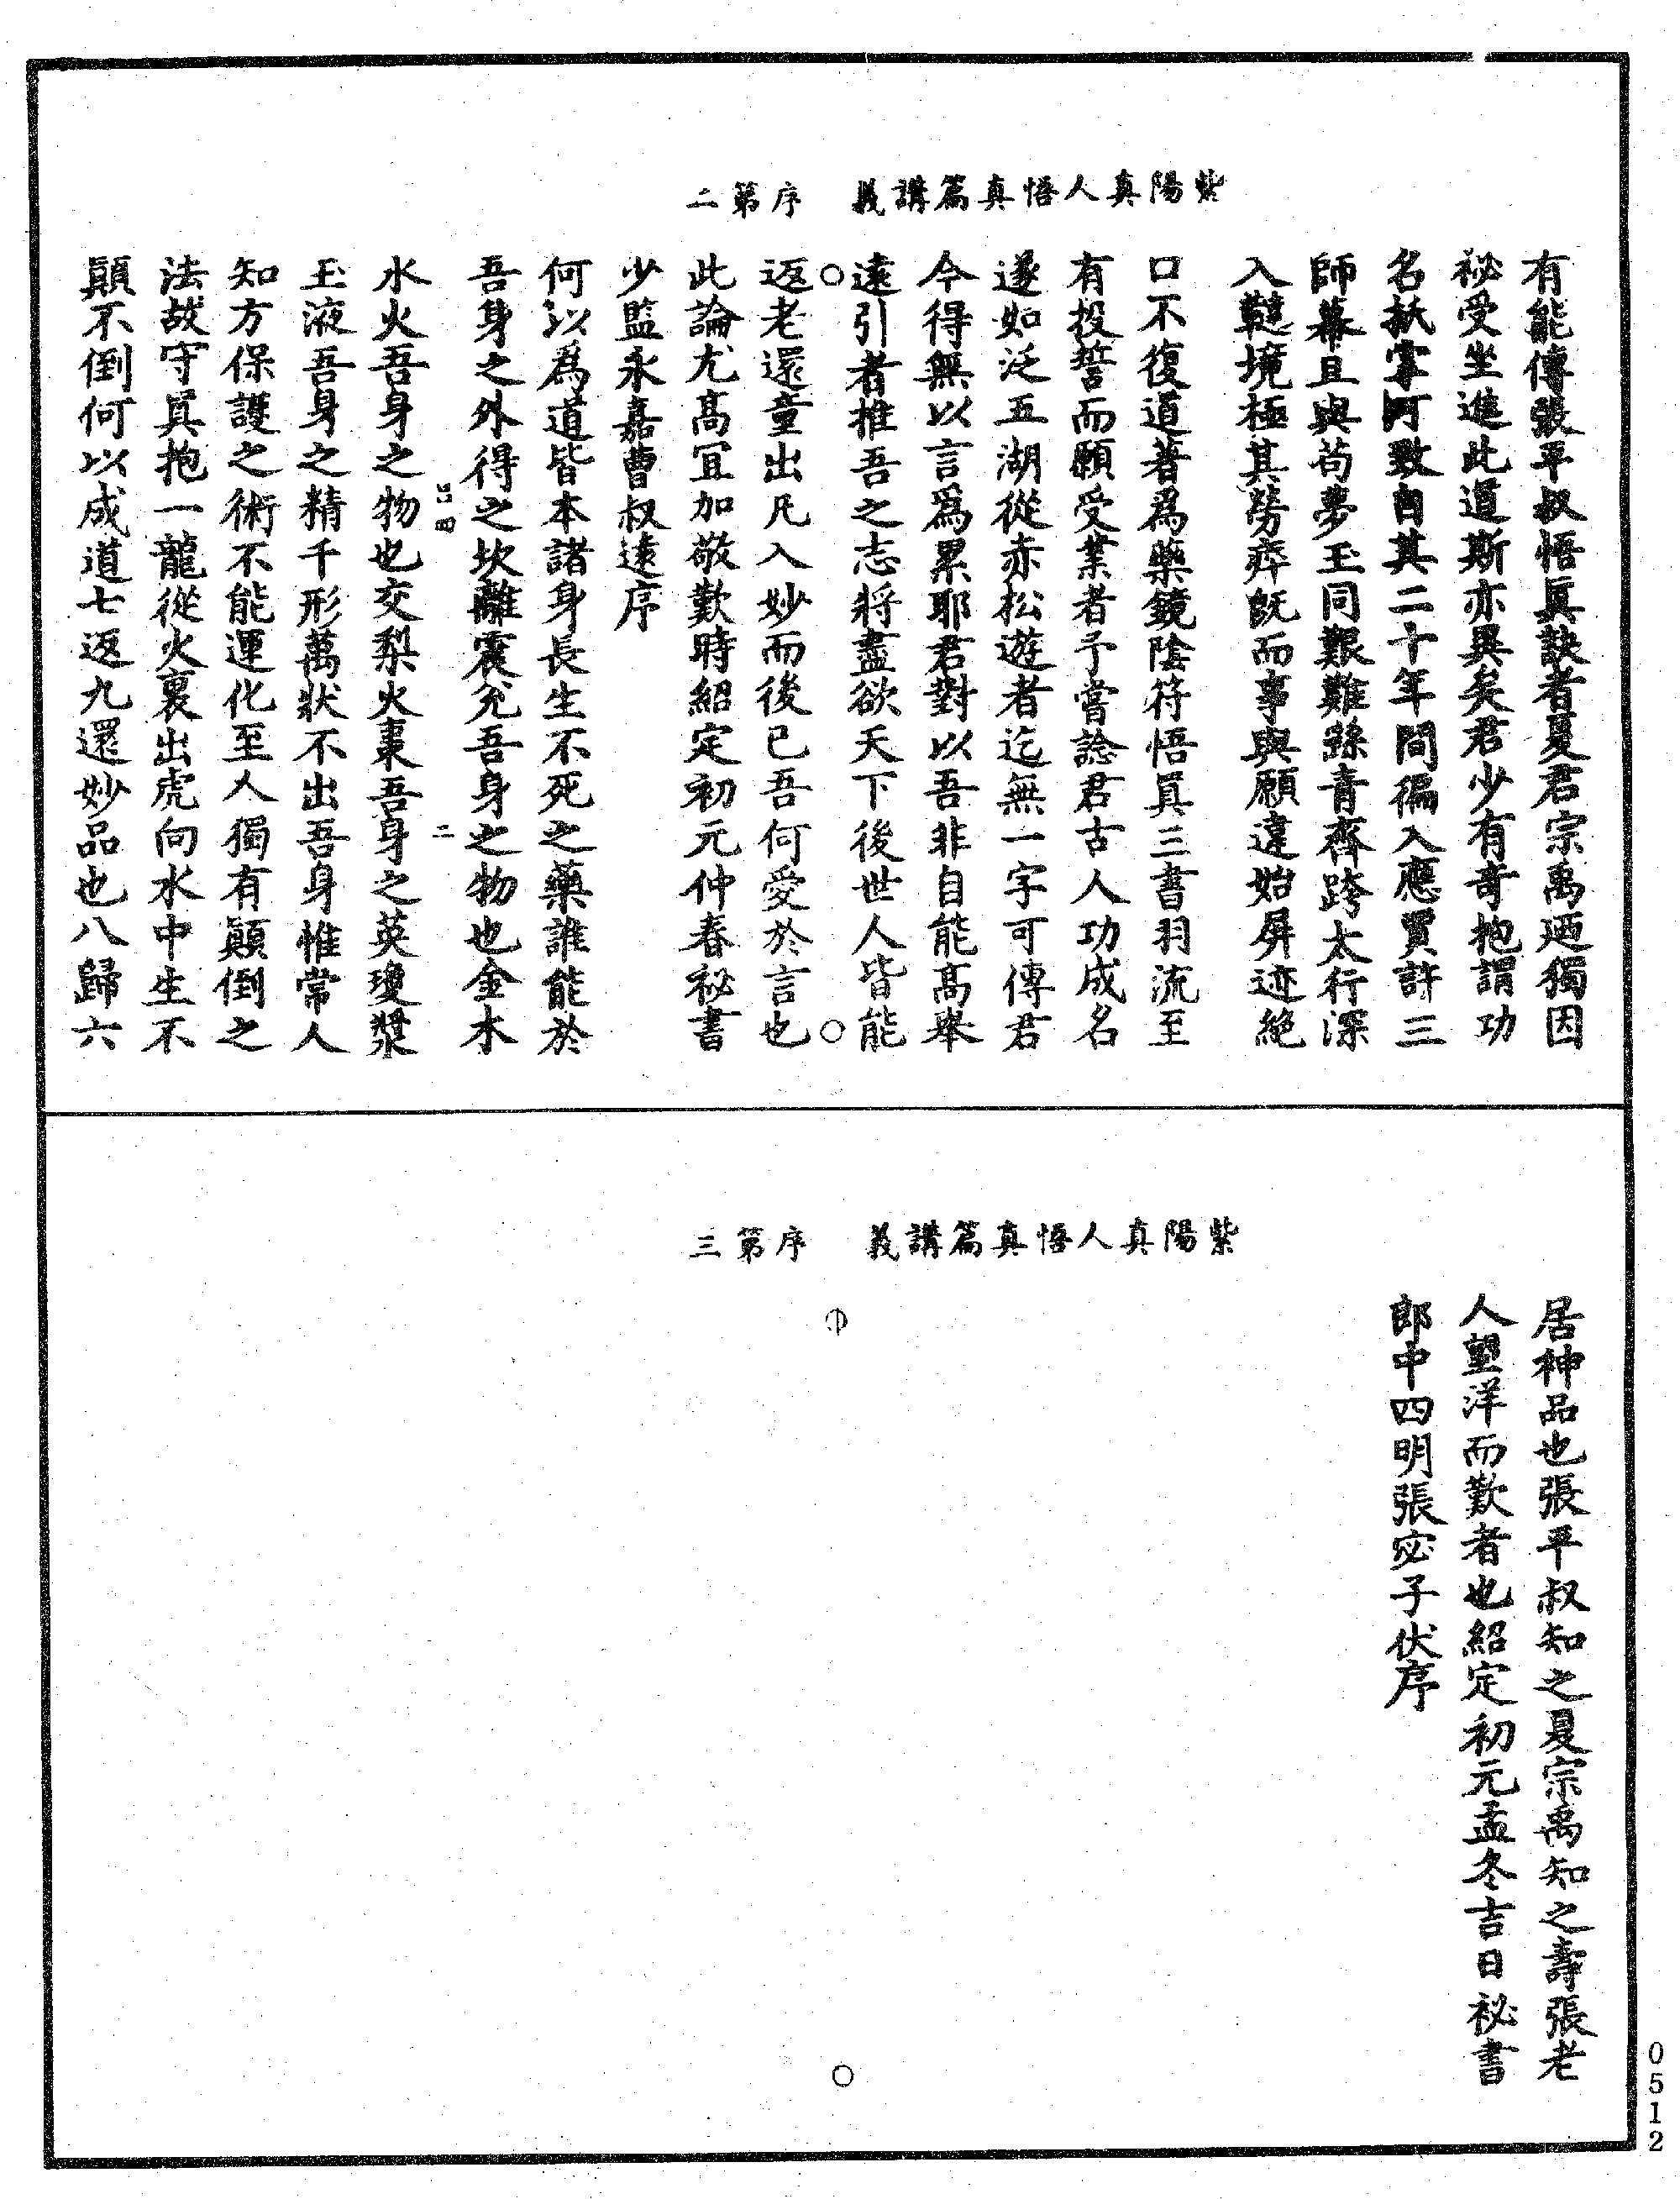 紫陽真人悟真篇講義　序第二
有能傳張平叔悟眞訣者夏君宗禹廼獨因
祕受坐進此道斯亦異矣君少有奇抱謂功
名抵掌可致自其二十年間徧入應賈許三
師幕且與苟夢玉同艱難繇青齊跨太行深
入韃境極其勞瘁旣而事與願違始屏迹絶
口不復道著爲藥鏡陰符悟眞三書羽流至
有投誓而願受業者予嘗諗君古人功成名
遂如泛五湖從赤松遊者迄無一字可傳君
今得無以言爲累耶君對以吾非自能高舉
遠引者推吾之志將盡欲天下後世人皆能
返老還童出凡入妙而後已吾何愛於言也
此論尤高冝加敬歎時紹定初元仲春祕書
少監永嘉曹叔遠序
何以爲道皆本諸身長生不死之藥誰能於
吾身之外得之坎離震兊吾身之物也金木
水火吾身之物也交梨火棗吾身之英瓊漿
玉液吾身之精千形萬狀不出吾身惟常人
知方保護之術不能運化至人獨有顚倒之
法故守眞抱一龍從火裏出虎向水中生不
顚不倒何以成道七返九還妙品也八歸六
二
紫陽真人悟真篇講義　序第三
居神品也張平叔知之夏宗禹知之壽張老
人望洋而歎者也紹定初元孟冬吉日祕書
郎中四明張宓子伏序
0512